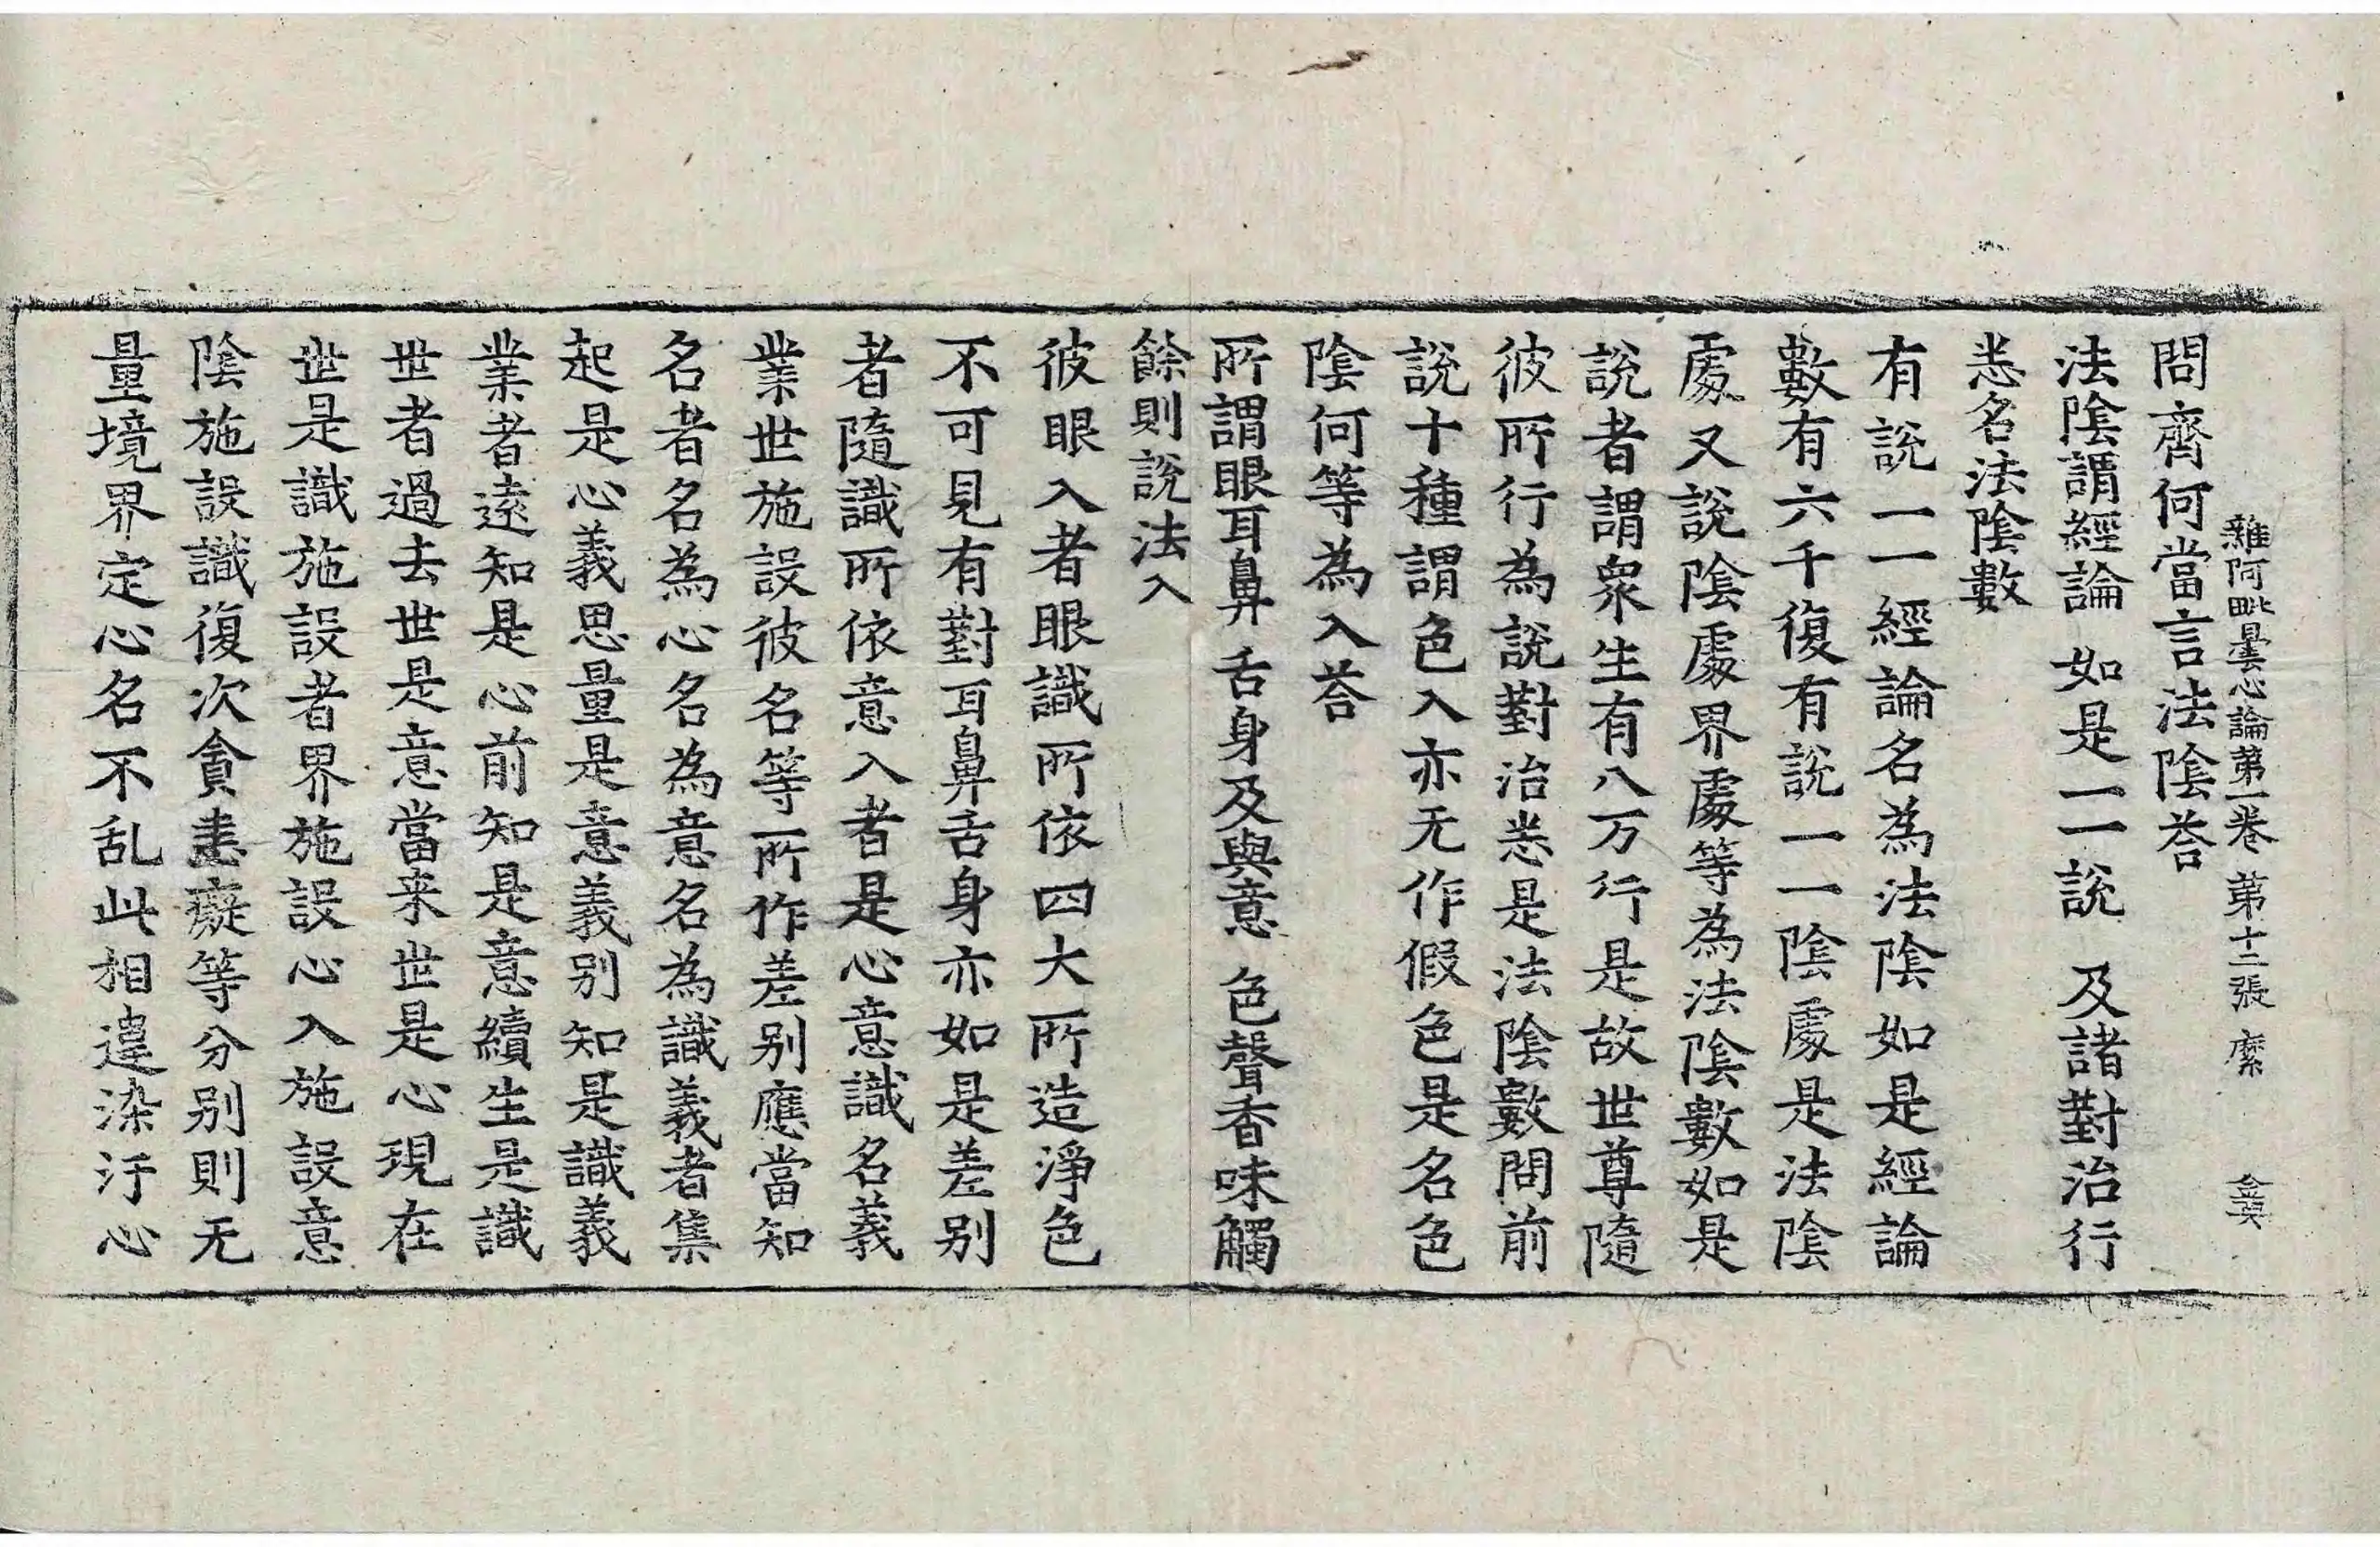 雜阿毗曇心論第一卷 第十二張 縻
問齊何當言法陰荅
法陰謂經論 如是一一說 及諸對治行
悉名法陰數
有說一一經論名為法陰如是經論
數有六千復有說一一陰處是法陰
處又說陰處界處等為法陰數如是
說者謂衆生有八万行是故世尊隨
彼所行為說對治悉是法陰數問前
說十種謂色入亦无作假色是名色
陰何等為入荅
所謂眼耳鼻 舌身及與意 色聲香味觸
餘則說法入
彼眼入者眼識所依四大所造淨色
不可見有對耳鼻舌身亦如是差別
者隨識所依意入者是心意識名義
業世施設彼名等所作差别應當知
名者名為心名為意名為識義者集
起是心義思量是意義别知是識義
業者遠知是心前知是意續生是識
世者過去世是意當来世是心現在
世是識施設者界施設心入施設意
陰施設識復次貪恚癡等分别則无
量境界定心名不乱此相違染汙心